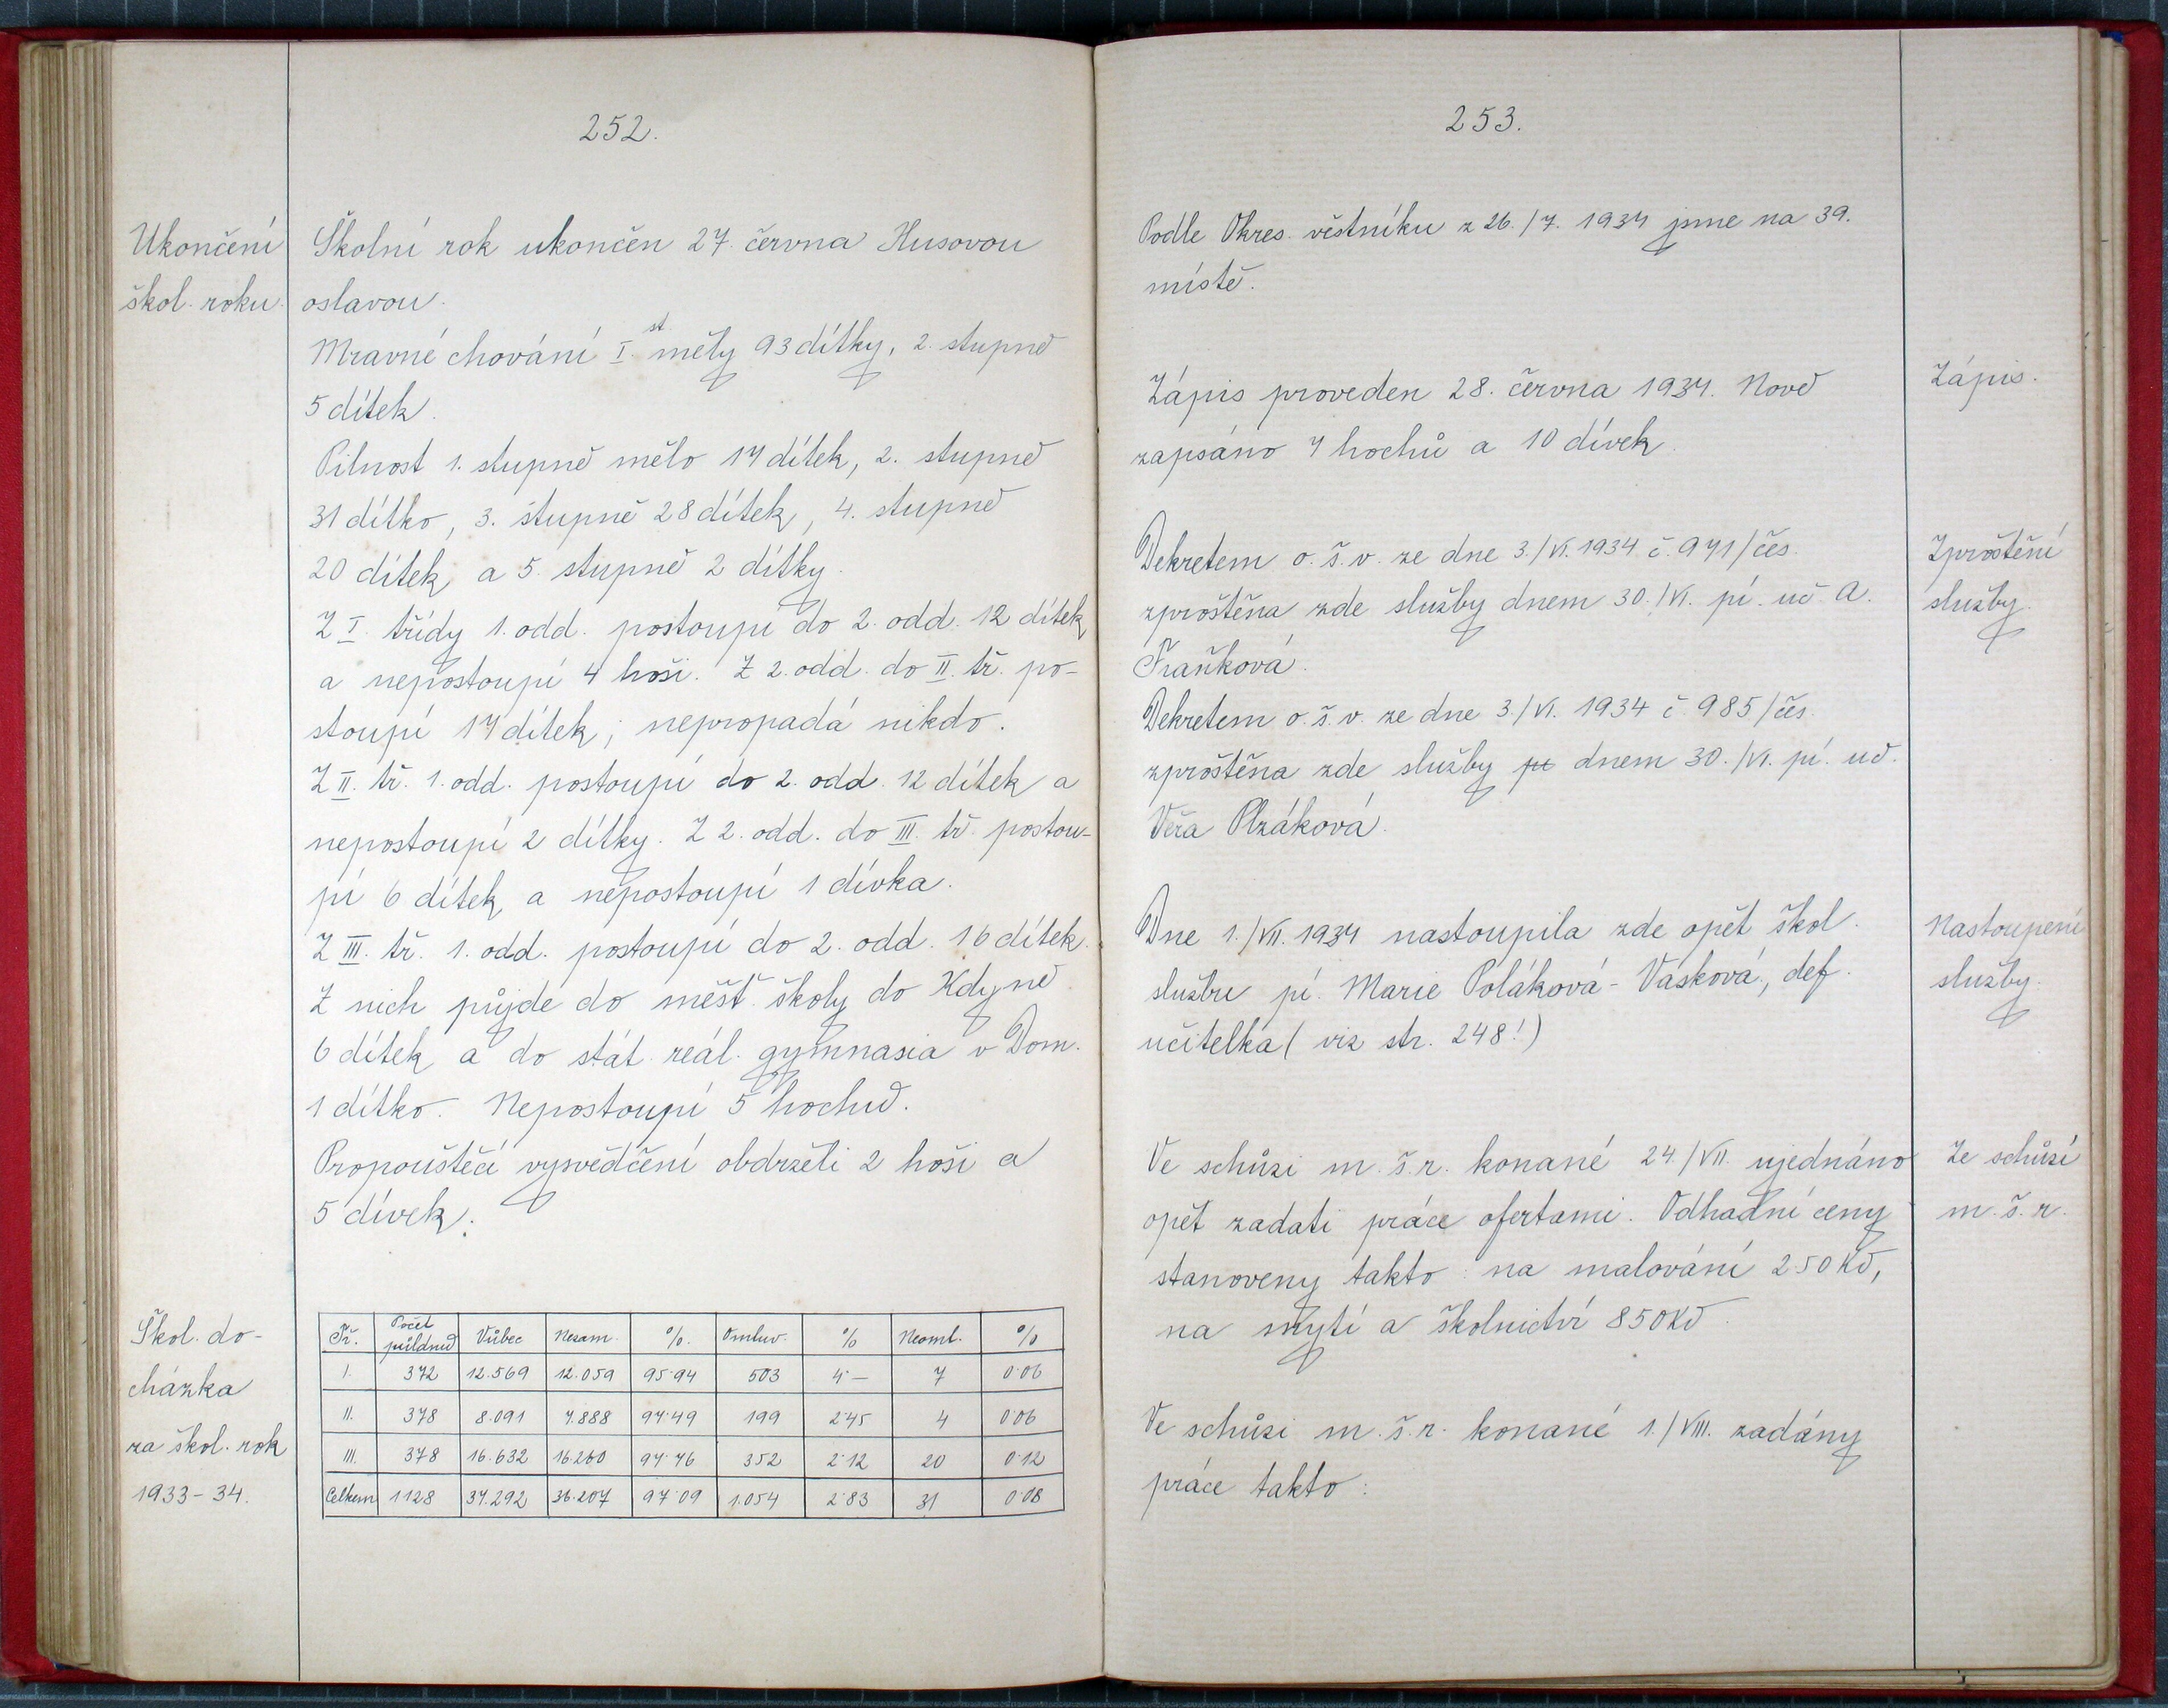 252.
Ukončení
škol. roku.
Školní rok ukončen 27. června Husovou
oslavou.
Mravné chování I. st měly 93 dítky, 2. stupně
5 dítek.
Pilnost 1. stupně mělo 17 dítek, 2. stupně
31 dítko, 3. stupně 28 dítek, 4. stupně
20 dítek a 5. stupně 2 dítky.
Z I. třídy 1. odd. postoupí do 2. odd. 12 dítek
a nepostoupí 4 hoši. Z 2. odd. do II. tř. po-
stoupí 17 dítek; nepropadá nikdo.
Z II. tř. 1. odd. postoupí do 2. odd. 12 dítek a
nepostoupí 2 dítky. Z 2. odd. do III. tř. postou-
pí 6 dítek a nepostoupí 1 dívka.
Z III. tř. 1. odd. postoupí do 2. odd. 16 dítek.
Z nich půjde do měšť. školy do Kdyně
6 dítek a do stát. reál. gymnasia v Dom.
1 dítko. Nepostoupí 5 hochů.
Propouštěcí vysvědčení obdrželi 2 hoši a
5 dívek.
Škol. do-
cházka
za škol. rok
1933-34.
Tř. Počet půldnů Vůbec Nezam. % Omluv. % Neoml. %
I. 372 12.569 12.059 95·94 503 4·— 7 0·06
II. 378 8.091 7.888 97·49 199 2·45 4 0·06
III. 378 16.632 16.260 97·76 352 2·12 20 0·12
Celkem 1128 37.292 36.207 97·09 1.054 2·83 31 0·08
253.
Podle Okres. věstníku z 26./7. 1934 jsme na 39.
místě.
Zápis.
Zápis proveden 28. června 1934. Nově
zapsáno 7 hochů a 10 dívek.
Zproštění
služby.
Dekretem o. š. v. ze dne 3./VI. 1934 č. 971/čes.
zproštěna zde služby dnem 30./VI. pí. uč. A.
Fraňková.
Dekretem o. š. v. ze dne 3./VI. 1934 č. 985/čes.
zproštěna zde služby pu dnem 30./VI. pí. uč.
Věra Plzáková.
Nastoupení
služby.
Dne 1./VII. 1934 nastoupila zde opět škol.
službu pí. Marie Poláková-Vasková, def.
učitelka (viz str. 248!)
Ze schůzí
m. š. r.
Ve schůzi m. š. r. konané 24./VII. ujednáno
opět zadati práce ofertami. Odhadní ceny
stanoveny takto: na malování 250 Kč,
na mytí a školnictví 850 Kč.
Ve schůzi m. š. r. konané 1./VIII. zadány
práce takto: